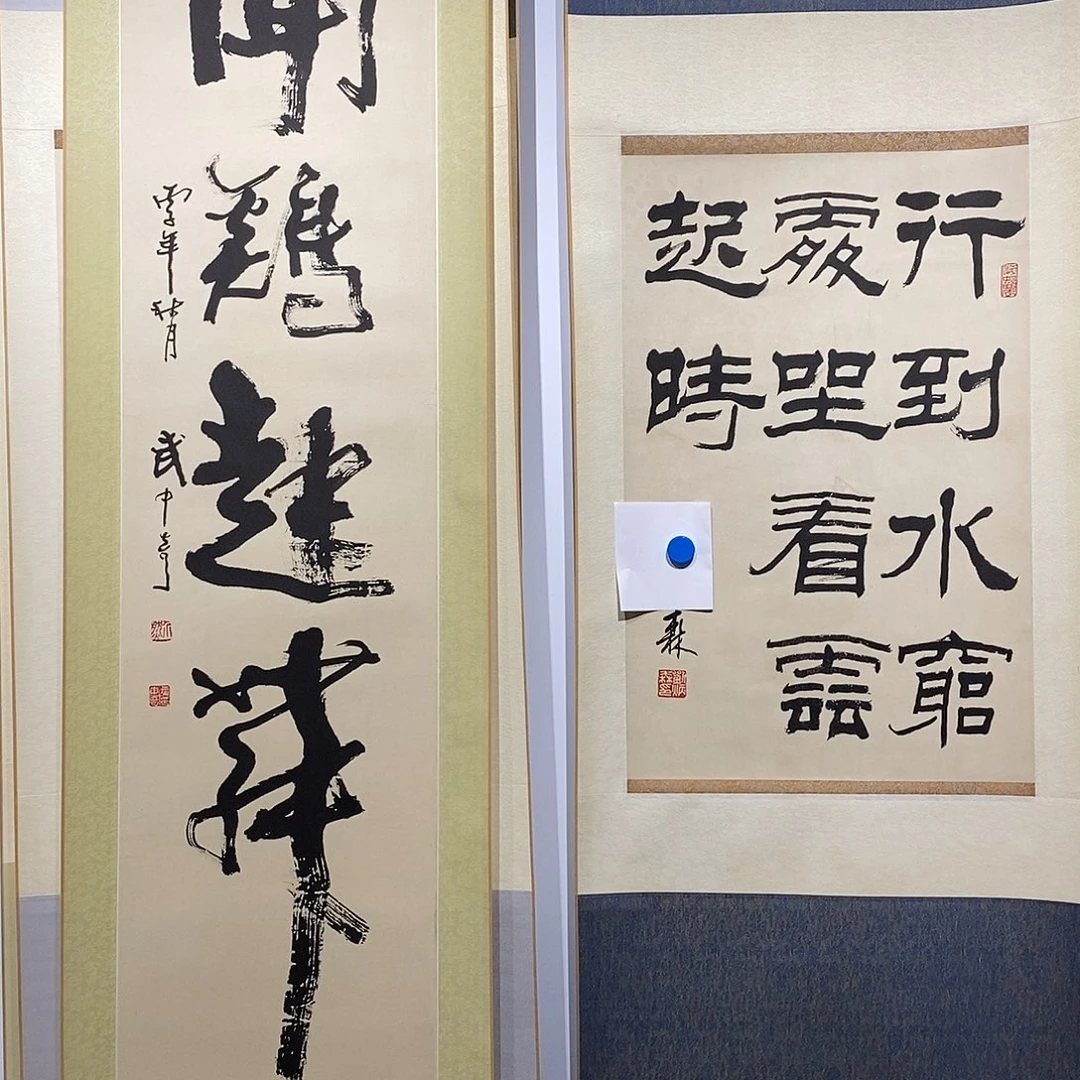 行到水窮
處坐看雲
起時
森
聞雞起舞
丙子年秋月 武中奇